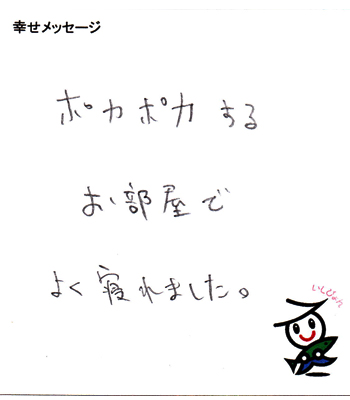 幸せメッセージ
ポカポカする
お部屋で
よく寝れました。